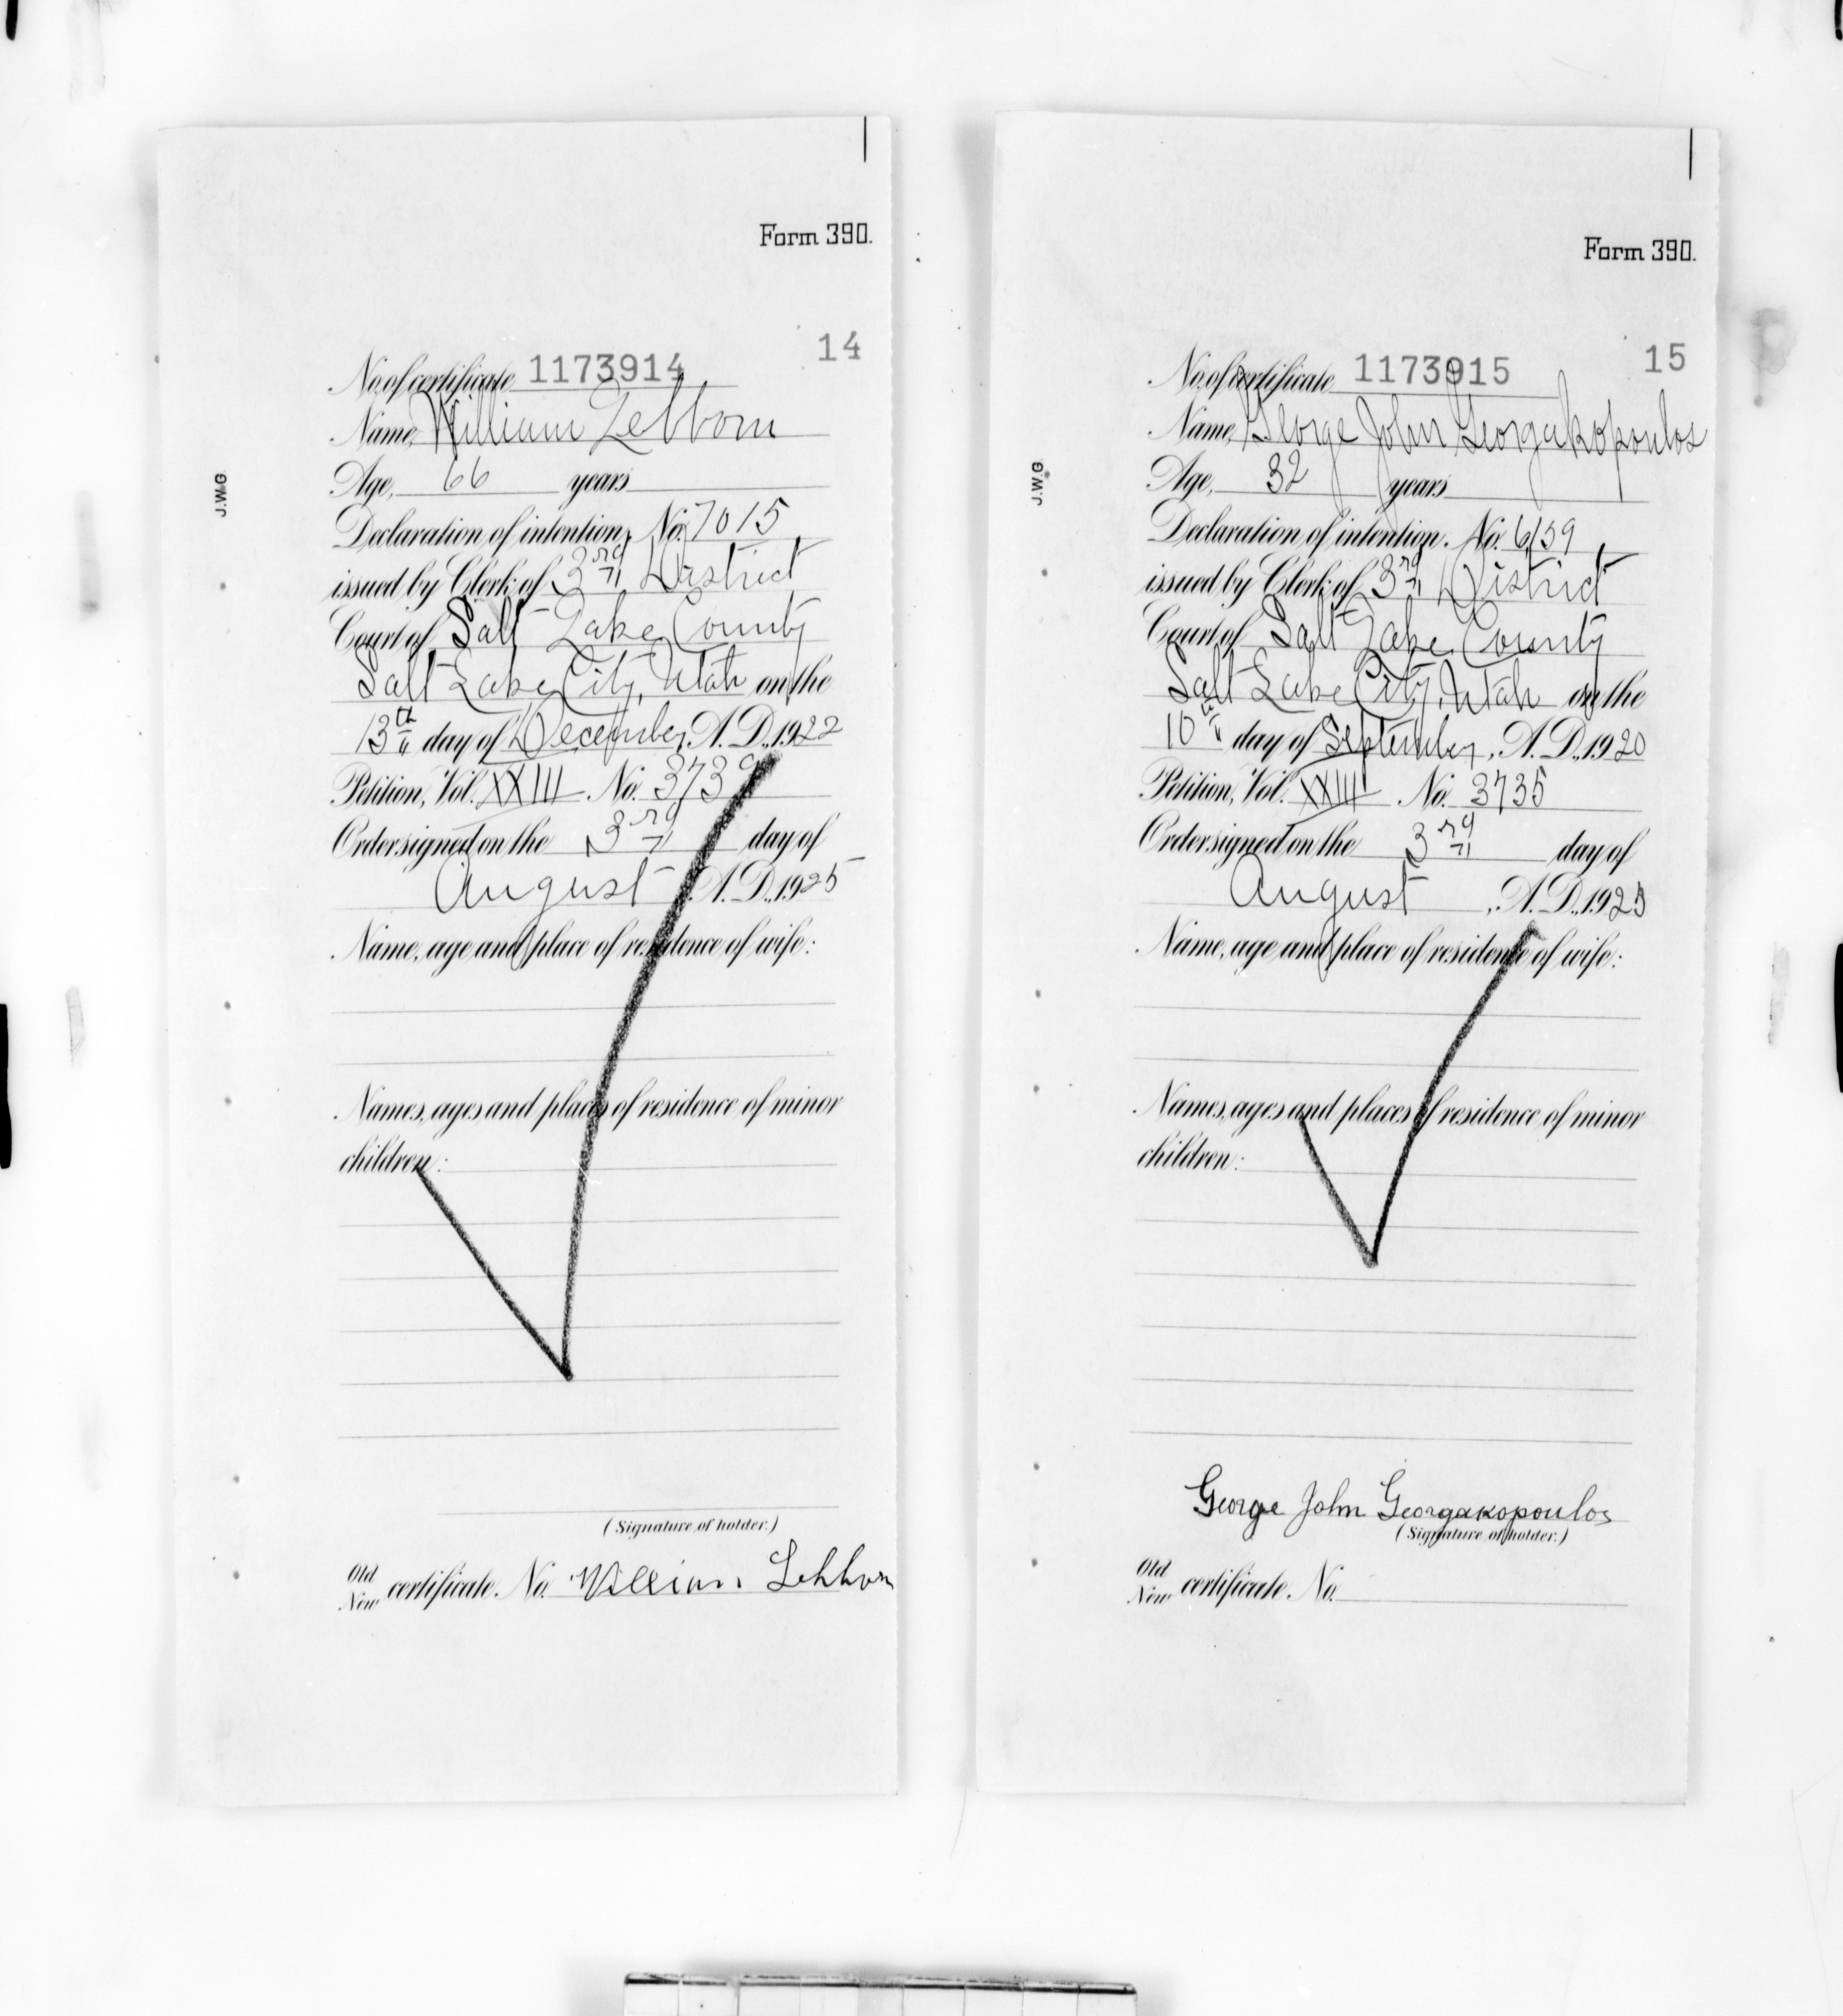 Form 390.
14
No. of certificate 1173914
Name, William Lebbom
Age, 66 years
Declaration of intention, No. 7015
issued by Clerk of 3rd District
Court of Salt Lake County
Salt Lake City, Utah on the
13th day of December, A. D., 1922
Petition, Vol. XXIII No. 3739
Order signed on the 3rd day of
August A. D., 1925
Name, age and place of residence of wife:
Names, ages and places of residence of minor
children:
(Signature of holder.)
Old
New certificate No. William
J.W.G.
Form 390.
15
No. of certificate 1173915
Name, George John Georgakopoulos
Age, 32 years
Declaration of intention. No. 6159
issued by Clerk of 3rd District
Court of Salt Lake County
Salt Lake City, Utah on the
10th day of September, A. D., 1920
Petition, Vol. XXIII No. 3735
Order signed on the 3rd day of
August, A. D., 1925
Name, age and place of residence of wife:
Names, ages and places of residence of minor
children:
George John Georgakopoulos
(Signature of holder.)
Old
New certificate No.
J.W.G.